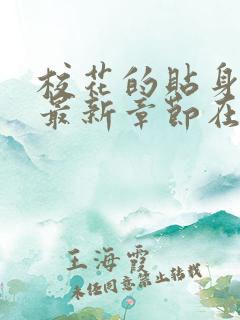 校花的贴身
最新章节在
王海霞
未经同意禁止转载